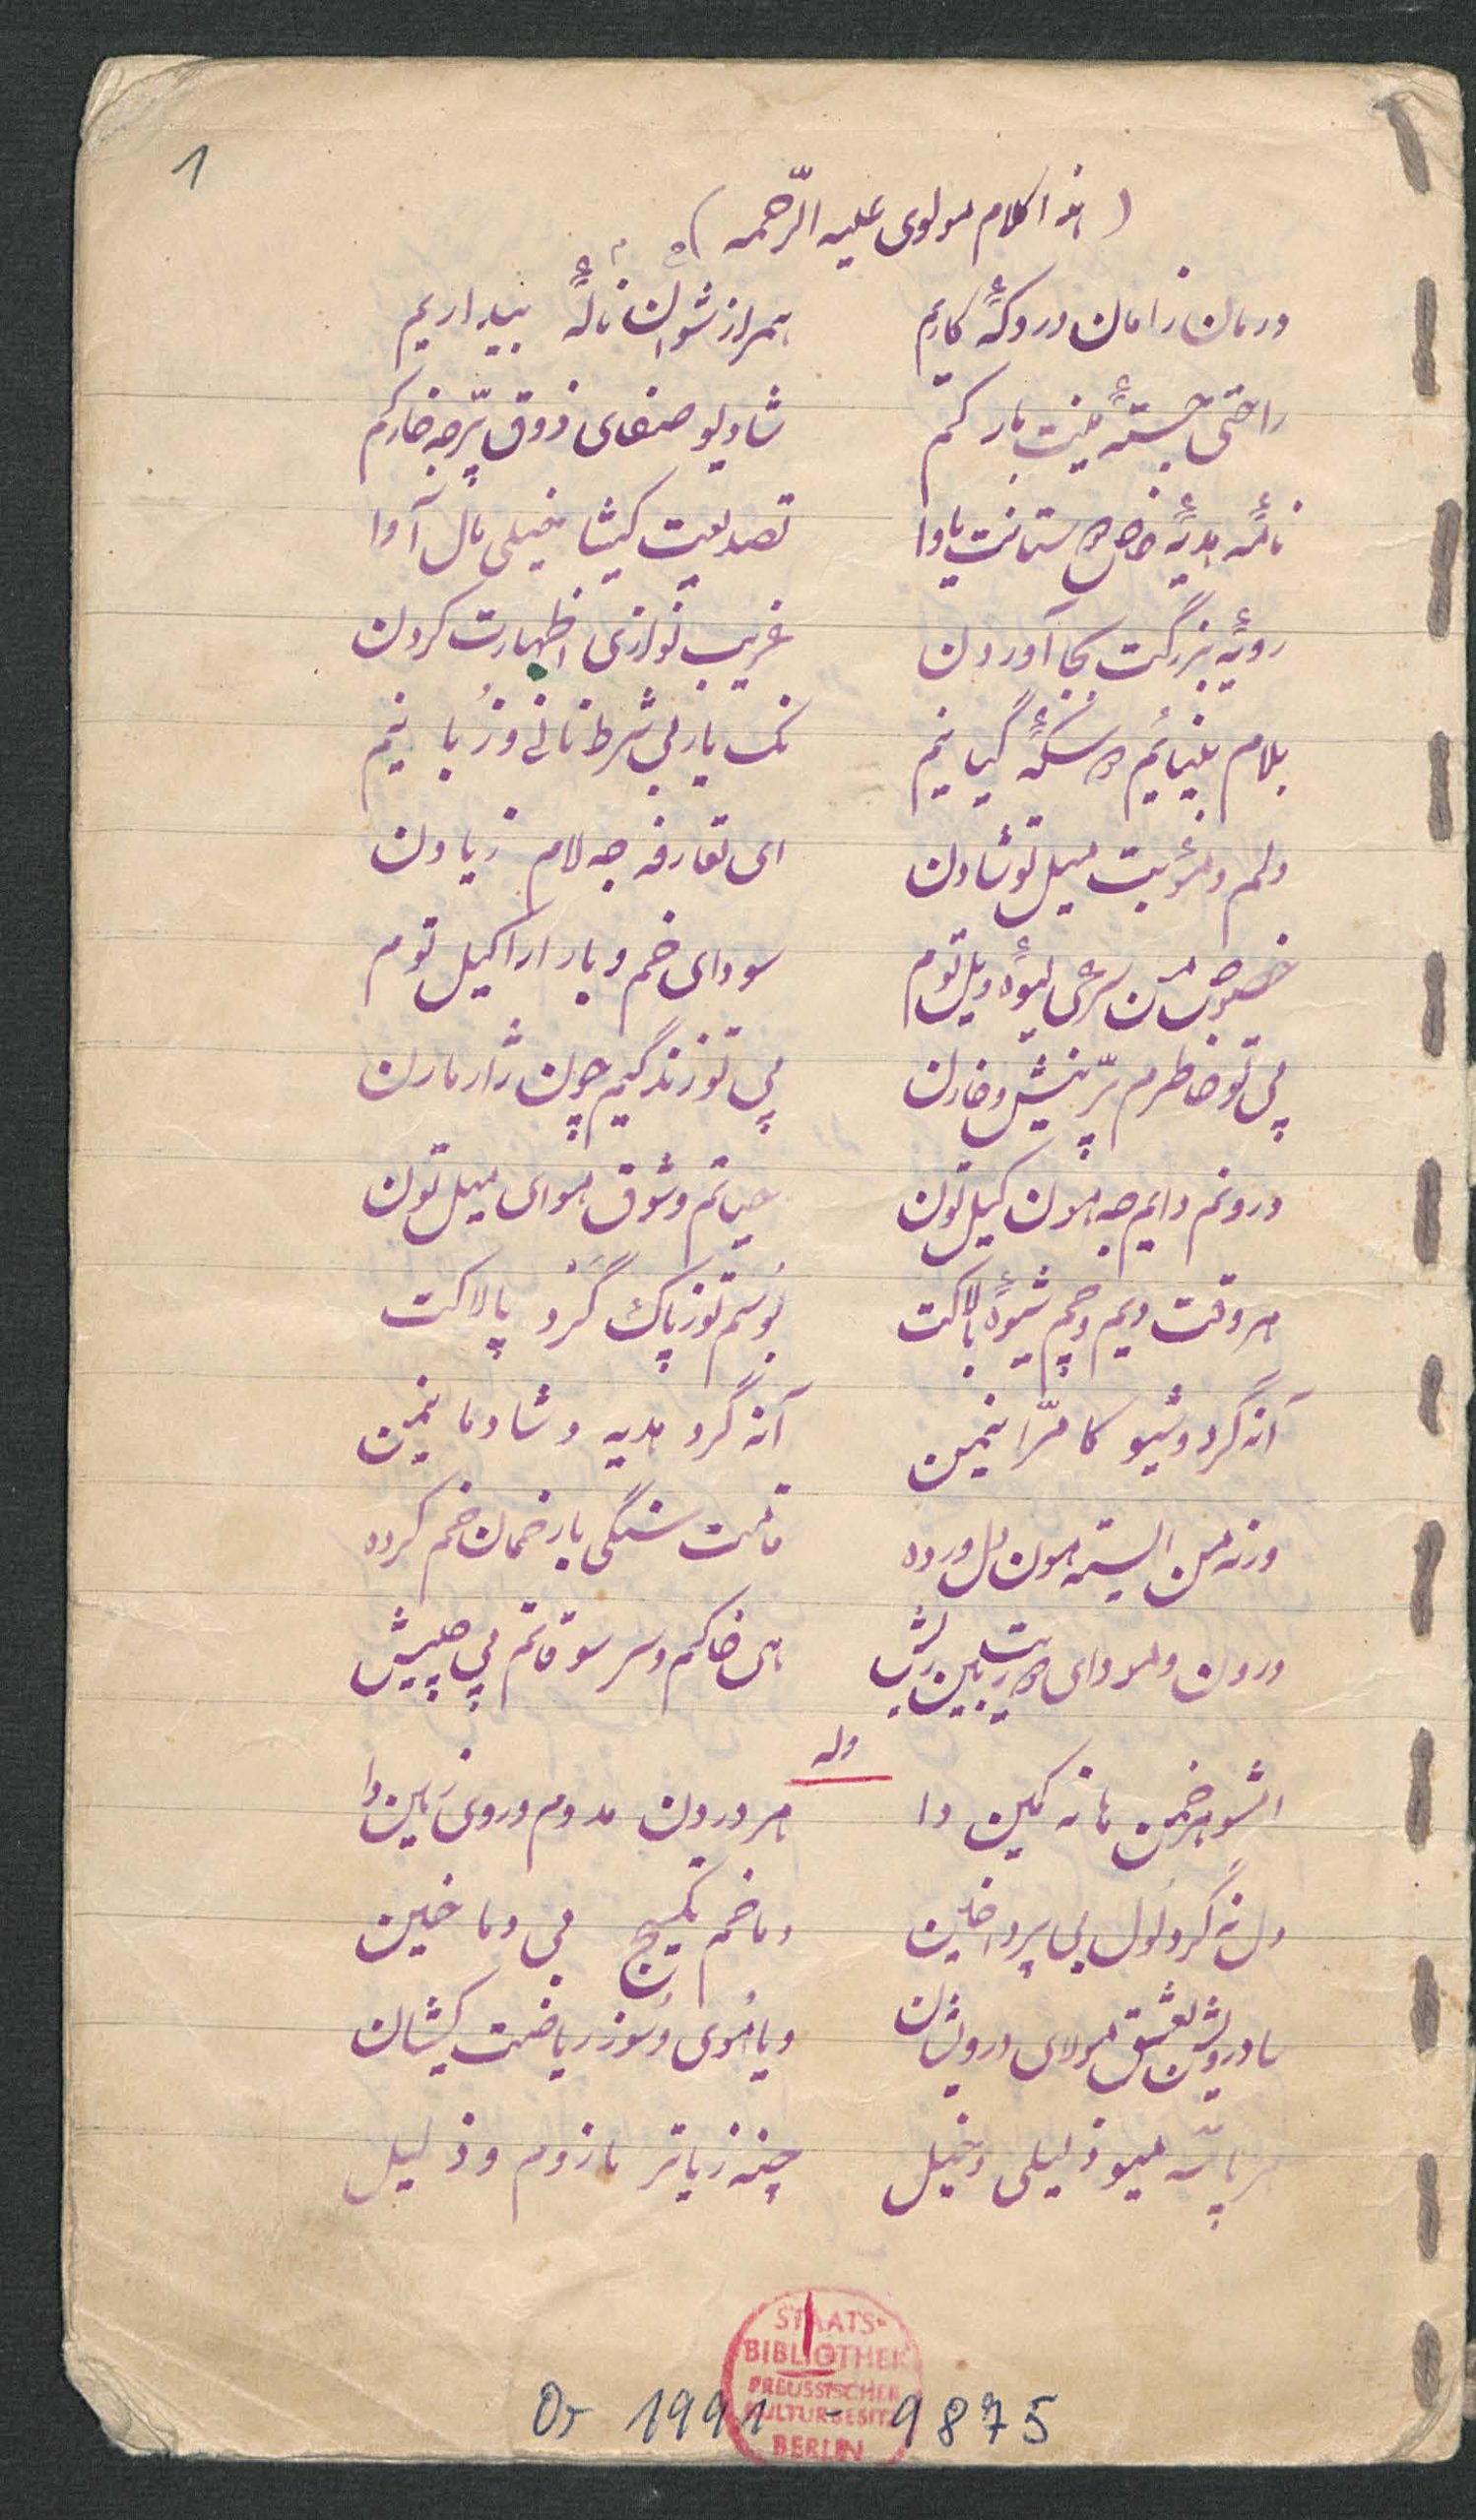 1
(هذا کلام مولوی علیه الرّحمه)
درمان زامان دردکهٔ کاریم همراز شوان نالهٔ بیداریم
راحتی جستهٔ مینت بارکم شادیو صفای ذوق پڕجه خارکم
نامهٔ هدیهٔ خاص دستانت یاوا تصدیعت کیشا خیلی مال آوا
رویهٔ بزرگت بجا آوردن غریب نوازی اظهارت کردن
بلام بینائیم سکهٔ گیانیم نک یاربی شرط نانی و زُبانیم
دلم میل توشادن ای تعارفه جه لام زیادن
خصوص من لیوهٔ ویل توم سودای خم و بار اراکیل توم
پی تو خاطرم پڕ نیش و خارن پی تو زندگیم چون ژار مارن
درونم دایم جه هون کیل تون حیاتم و شوق هوای میل تون
هر وقت دیم وچم شیوهٔ بالاکت بوسم توز پاک گَرد پالاکت
آنه گرد و شیو کامرّانیمن آنه گرد هدیه و شادمانیمن
ورنه من ایسته هون دل ورده قامت سنگی بار خمان خم کرده
دردن و سودای ریش هی خاکم وسر سوقاتم پی چیش
وله
امشو هرخمن هانه کمین دا هر دردن مدوم و روی زمین دا
دل نه گرد لول بی پرواخین دماخم تکیج پی دماخین
یا درویشن بعشق مولای درویشان ویا هوی و سوز ریاضت کیشان
میو ذلیلی دخیل چنه زیاتر نازوم و ذلیل
STAATS-
BIBLIOTHEK
PREUSSISCHER
KULTURBESITZ
BERLIN
Or 1991 - 9875